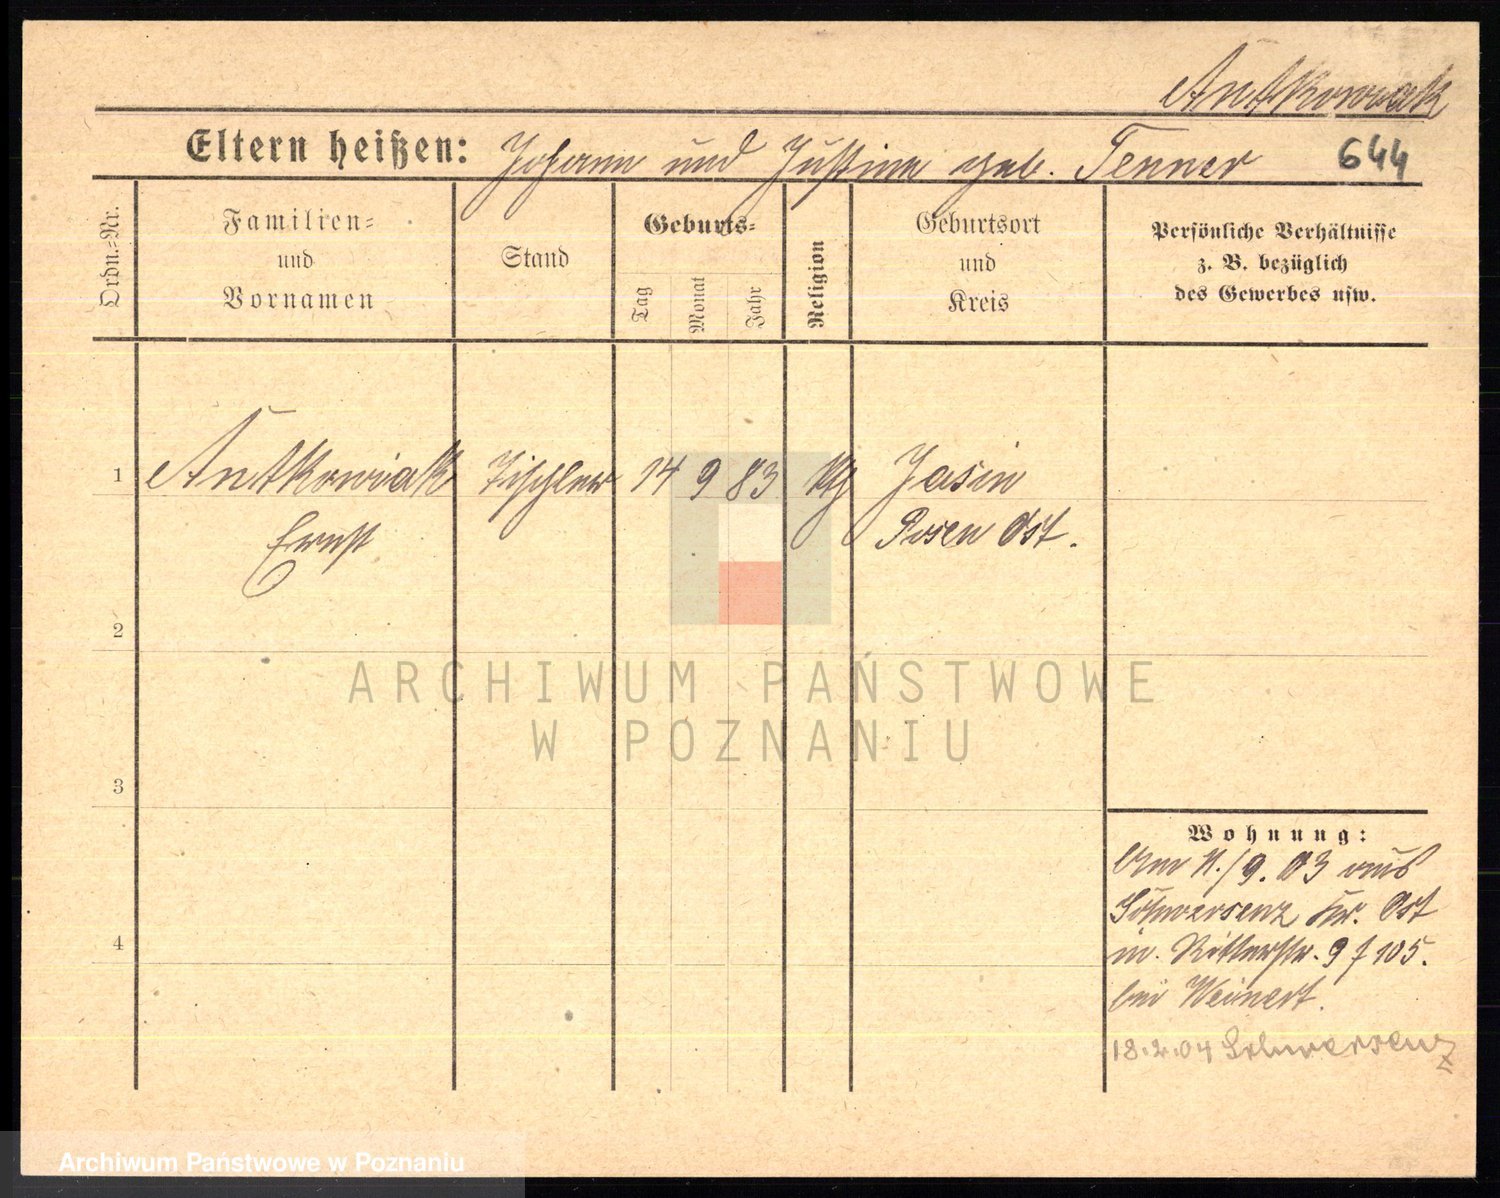 Antkowiak
Eltern heißen: Johann und Justine geb. Tenner 644
Ordn.=Nr.
Familien=
und
Vornamen
Stand
Geburts=
Tag
Monat
Jahr
Religion
Geburtsort
und
Kreis
Persönliche Verhältnisse
z. B. bezüglich
des Gewerbes usw.
1 Antkowiak Tischler 14 9 83 Jasin
Ernst Posen Ost.
2
3
4
Wohnung:
/9. 03 aus
Schwersenz Kr. Ost
in. Ritterstr. 9 f 105.
bei Weinert.
18.2.04 Schwersenz
ARCHIWUM PAŃSTWOWE
W POZNANIU
Archiwum Państwowe w Poznaniu